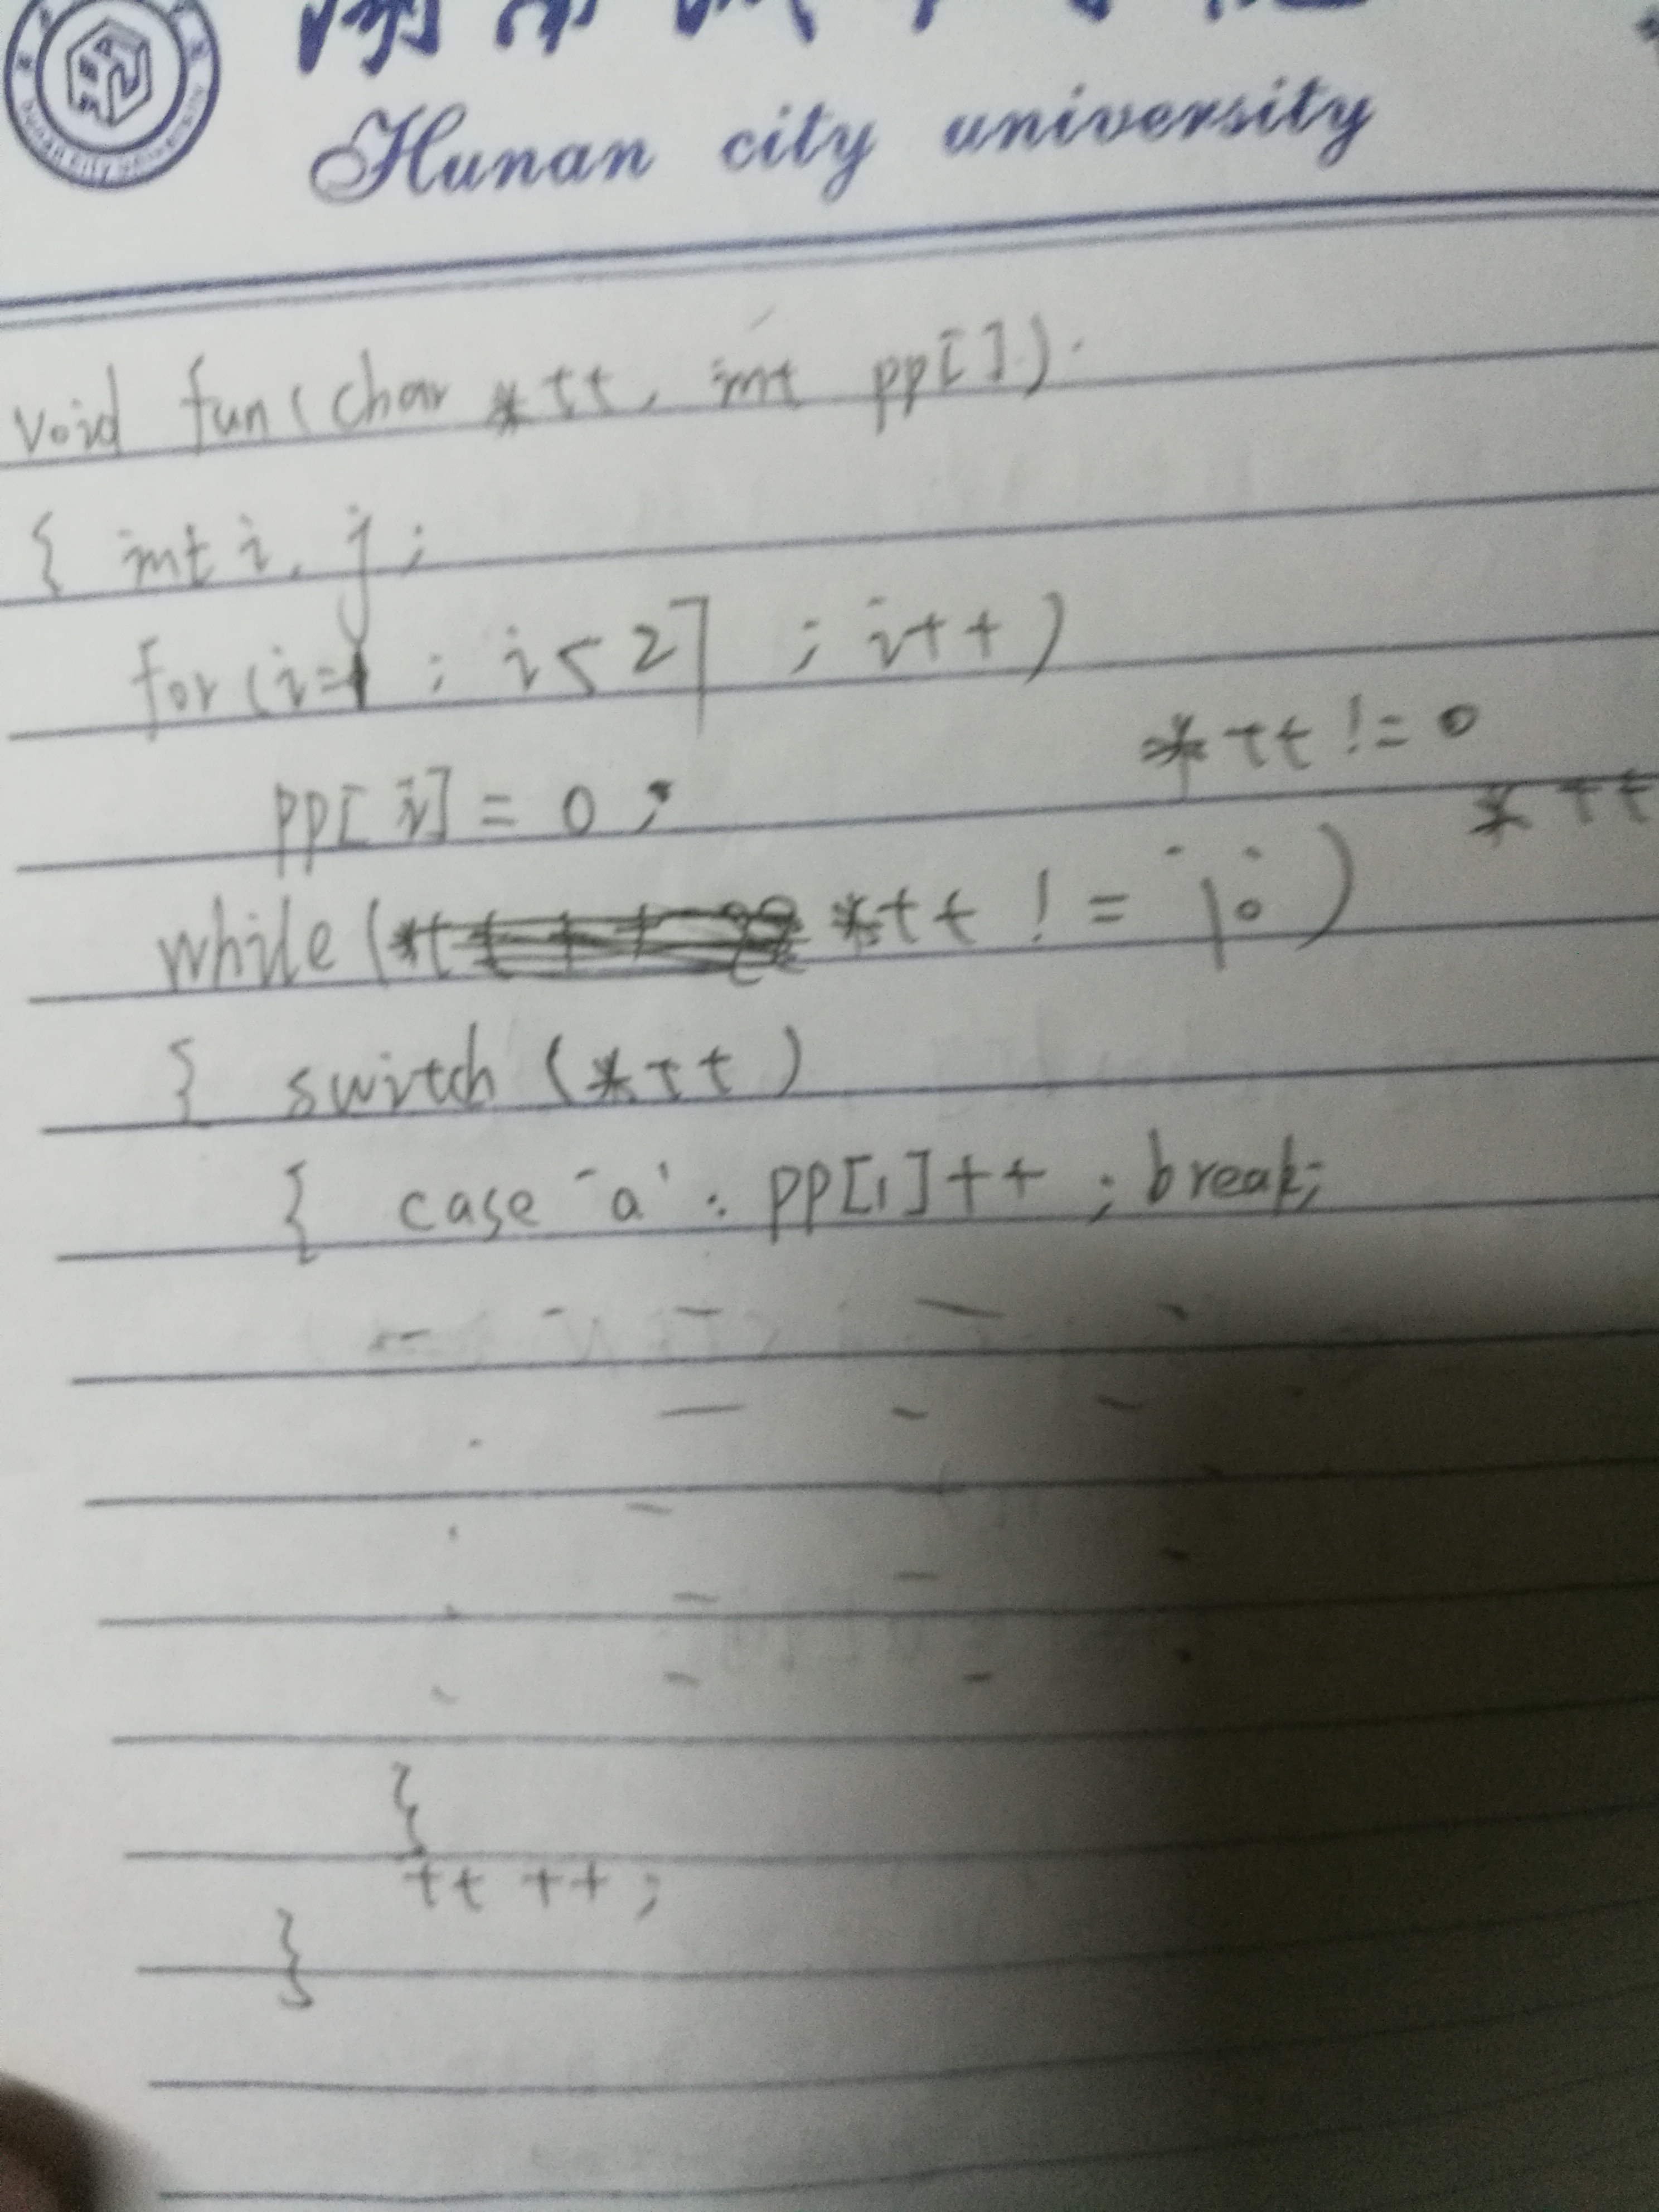 Hunan city university
void fun(char *tt, int pp[])
{ int i, j;
for(i=1; i<27; i++)
*tt != 0
pp[i] = 0;
*tt
while( *tt != '\0')
{ switch (*tt)
{ case 'a': pp[1]++; break;
}
tt++;
}